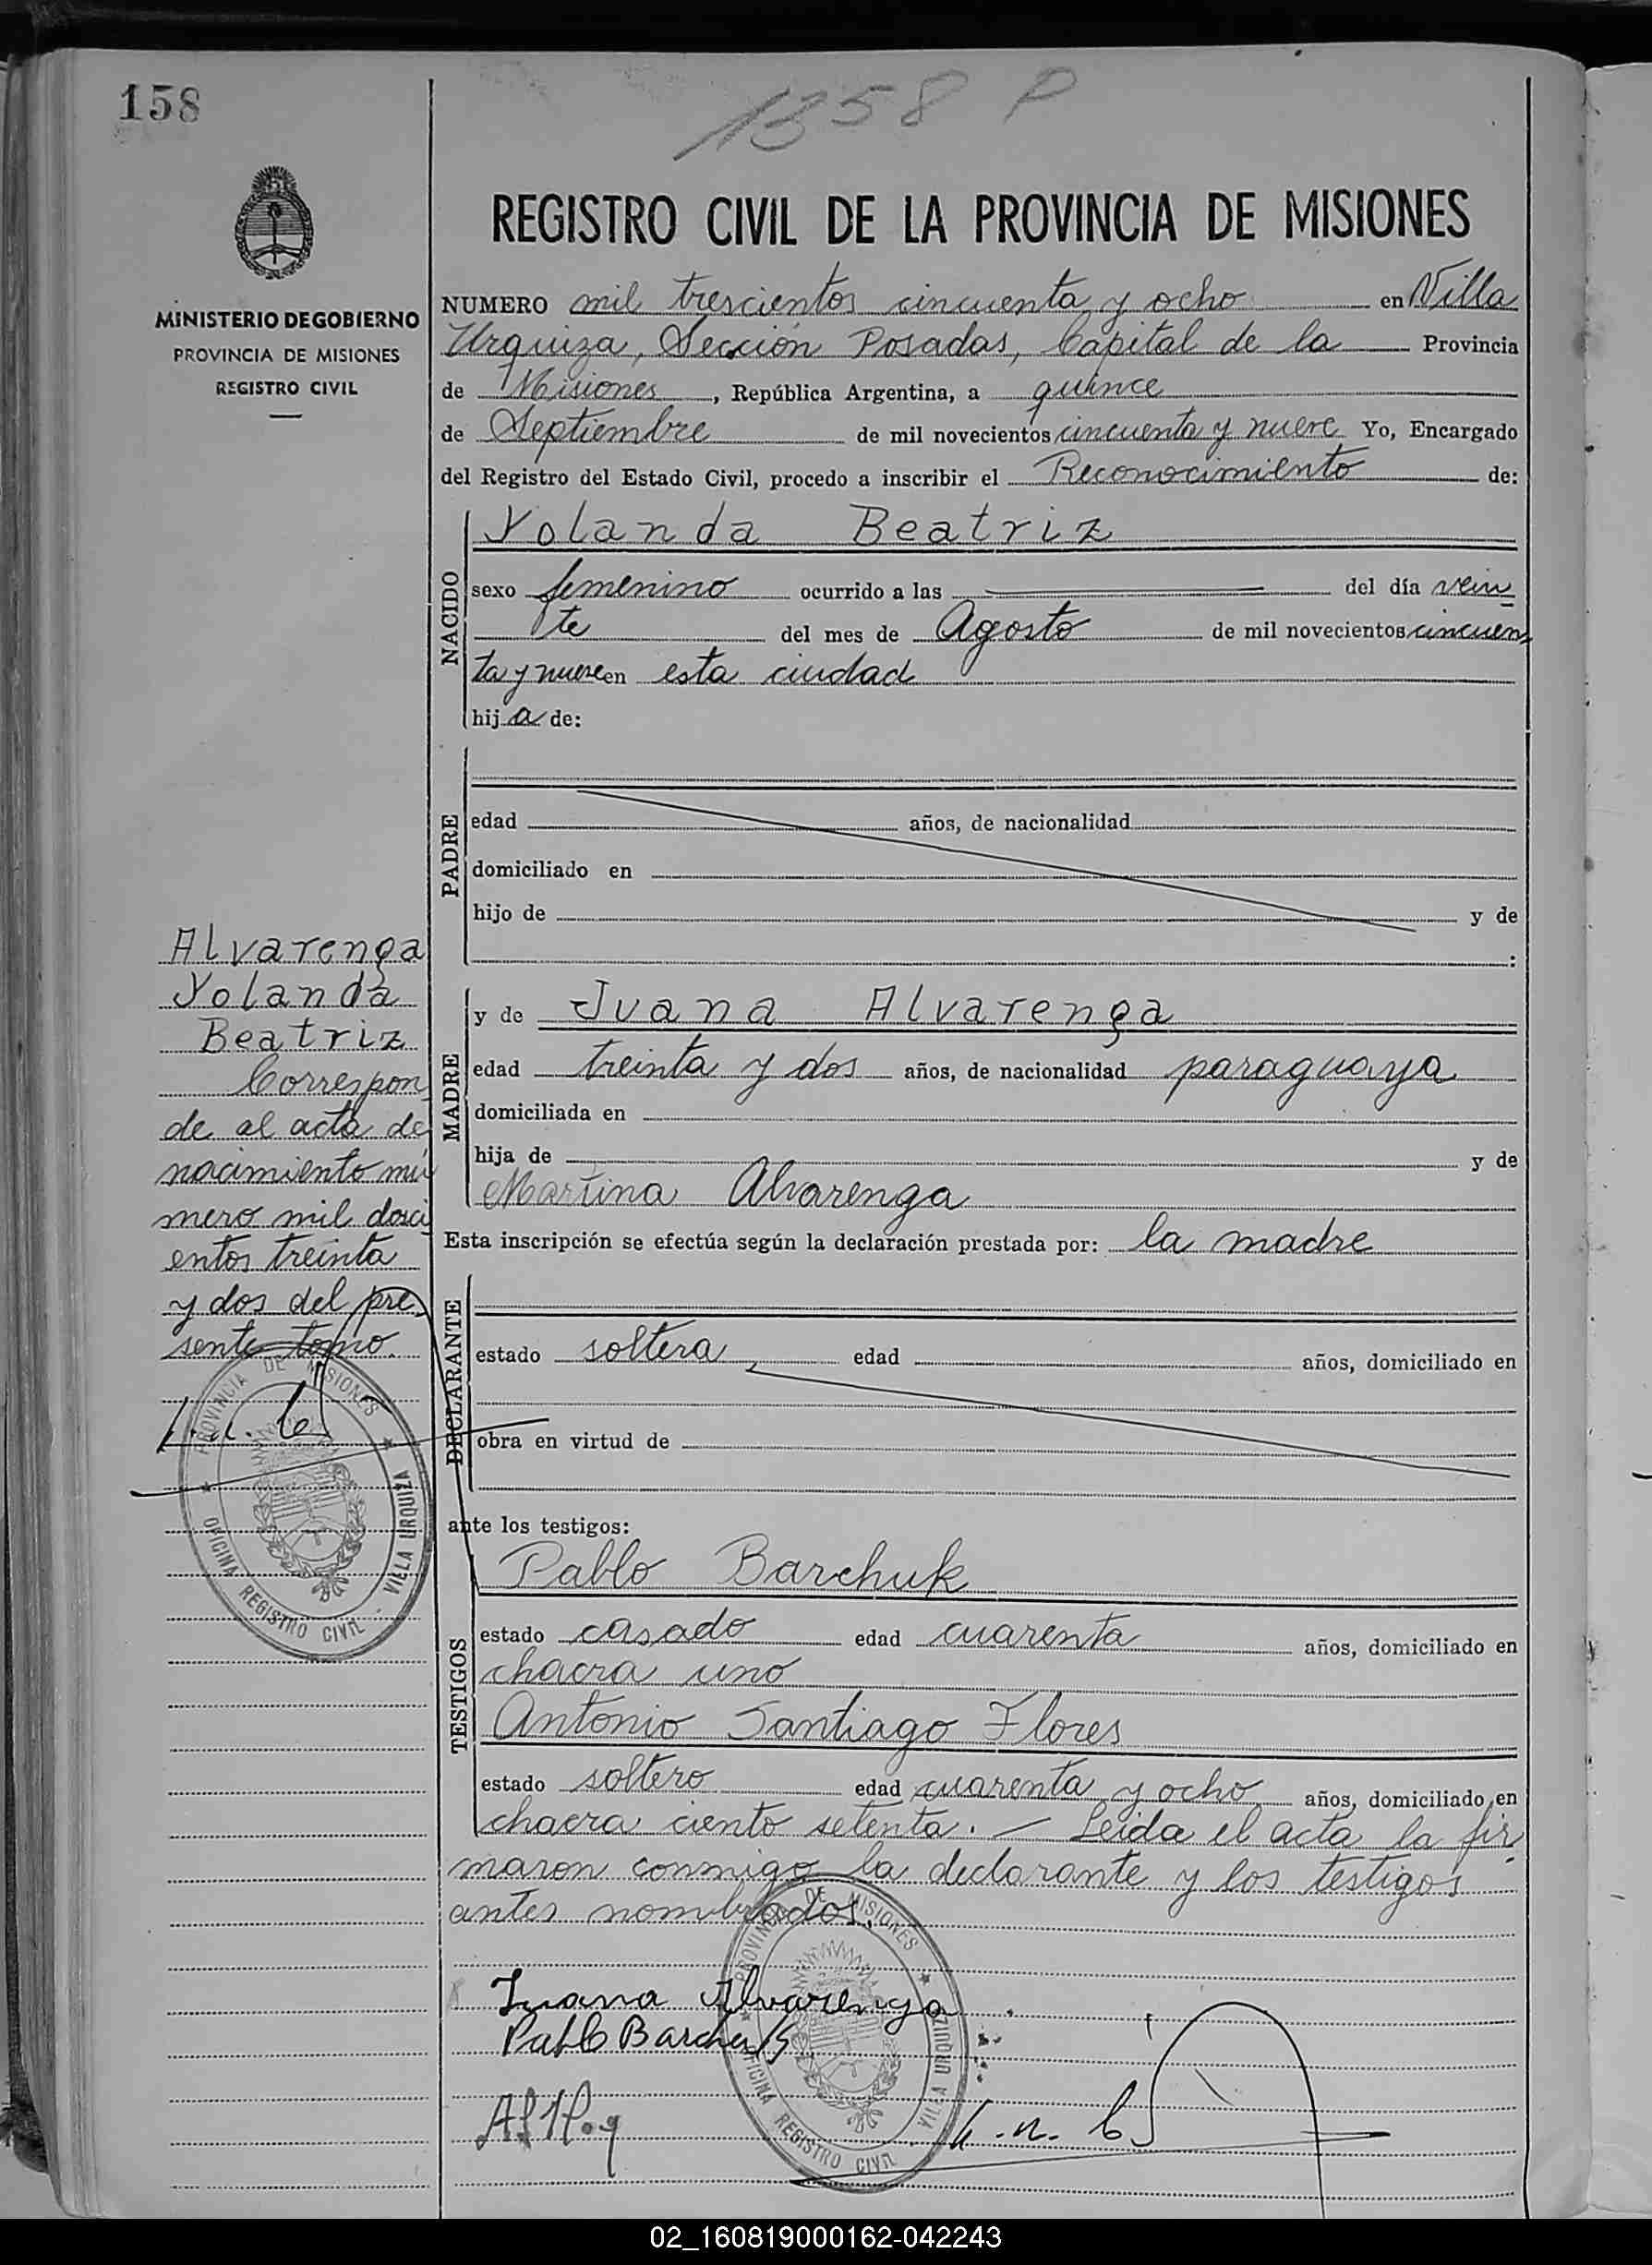 158
1358 P
REGISTRO CIVIL DE LA PROVINCIA DE MISIONES
MINISTERIO DE GOBIERNO
PROVINCIA DE MISIONES
REGISTRO CIVIL
NUMERO mil trescientos cincuenta y ocho en Villa
Urquiza, Sección Posadas, Capital de la Provincia
de Misiones, República Argentina, a quince
de Septiembre de mil novecientos cincuenta y nueve Yo, Encargado
del Registro del Estado Civil, procedo a inscribir el Reconocimiento de:
NACIDO
Yolanda Beatriz
sexo femenino ocurrido a las del día vein
te del mes de Agosto de mil novecientos cincuen
ta y nueve en esta ciudad
hija de:
PADRE
edad años, de nacionalidad
domiciliado en
hijo de y de
:
MADRE
y de Juana Alvarenga
edad treinta y dos años, de nacionalidad paraguaya
domiciliada en
hija de y de
Martina Alvarenga
Esta inscripción se efectúa según la declaración prestada por: la madre
DECLARANTE
estado soltera, edad años, domiciliado en
obra en virtud de
ante los testigos:
TESTIGOS
Pablo Barchuk
estado casado edad cuarenta años, domiciliado en
chacra uno
Antonio Santiago Flores
estado soltero edad cuarenta y ocho años, domiciliado en
chacra ciento setenta. — Leida el acta la fir
maron conmigo la declarante y los testigos
antes nombrados.
Juana Alvarenga
Pablo Barchuk
Alvarenga
Yolanda
Beatriz
Correspon
de al acta de
nacimiento nú
mero mil dosci
entos treinta
y dos del pre
sente tomo.
PROVINCIA DE MISIONES
OFICINA REGISTRO CIVIL - VILLA URQUIZA
PROVINCIA DE MISIONES
OFICINA REGISTRO CIVIL - VILLA URQUIZA
02_160819000162-042243